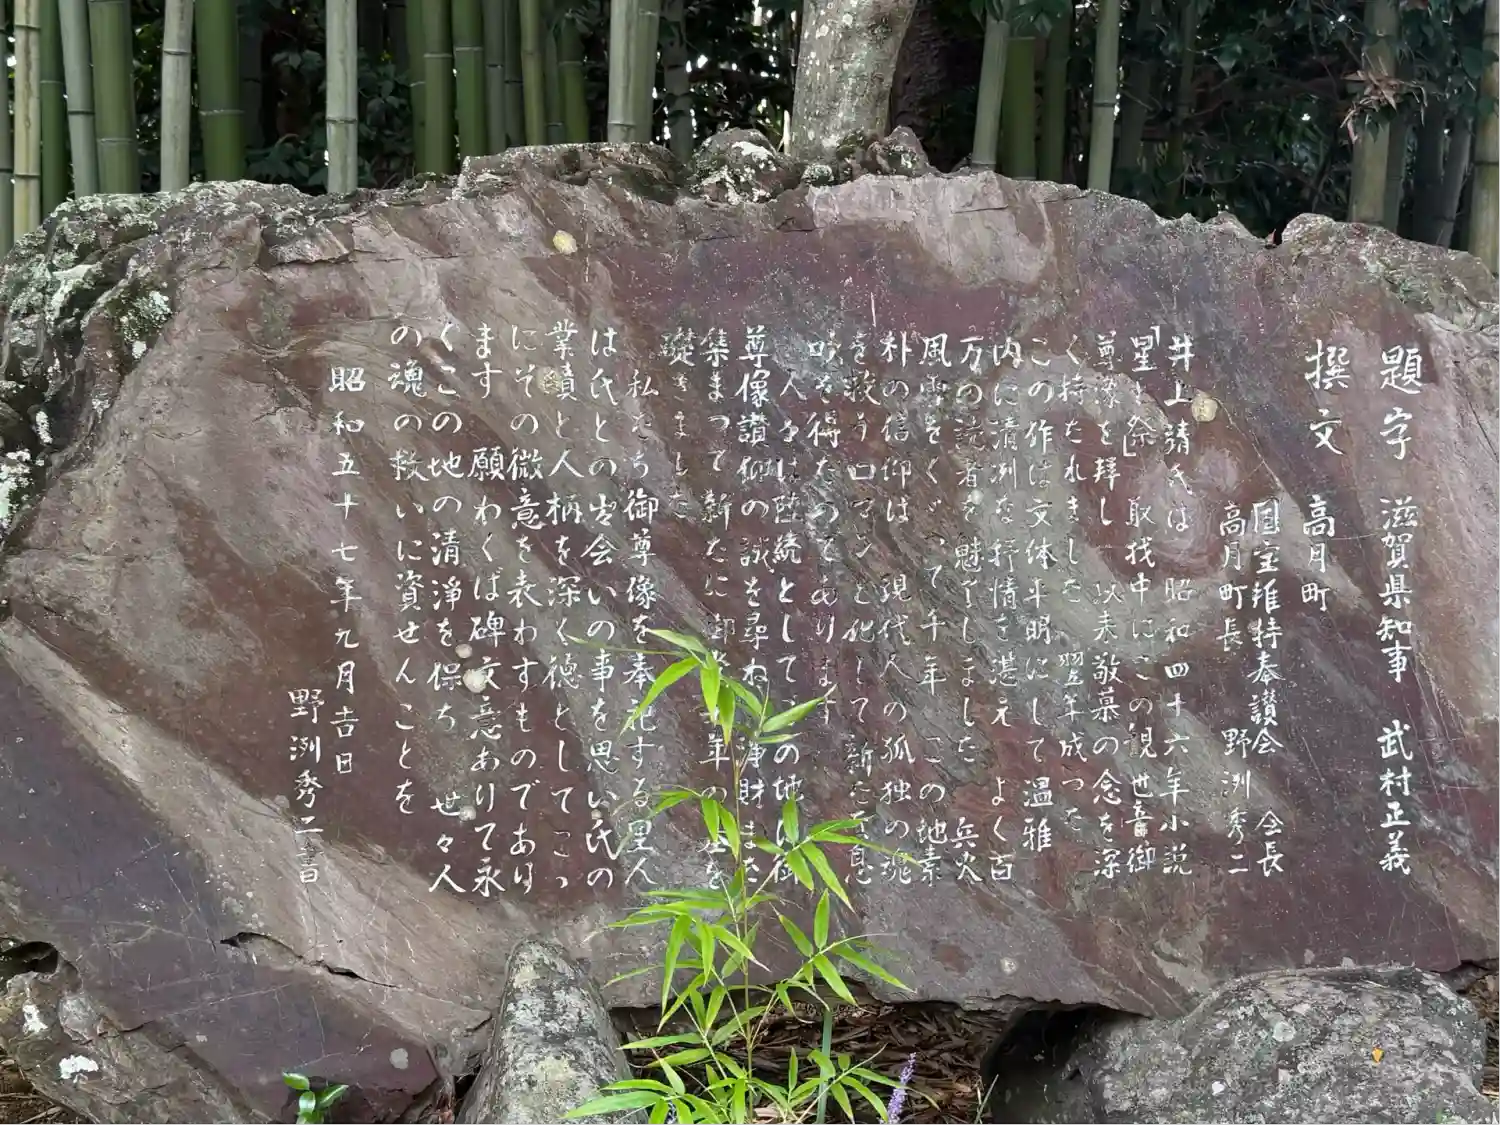 題字 滋賀県知事 武村正義
撰文 高月町
国宝維持奉讃会 会長
高月町長 野洌秀二
井上靖氏は 昭和四十六年小説
「星と祭」取材中にこの観世音御
尊像を拝し 以来敬慕の念を深
く持たれました 翌年成った
この作は文体平明にして温雅
内に清洌な抒情を湛え よく百
万の読者を魅了しました 兵火
風雪をくゞって千年 この地素
朴の信仰は 現代人の孤独の魂
を救うロマンと化して新たな息
吹を得たのであります
人々は陸続として この地に御
尊像讃仰の誠を尋ね 浄財また
集まって新たに御 年の を
礎きました
私たち御尊像を奉祀する里人
は氏との出会いの事を思い氏の
業績と人柄を深く徳としてこゝ
にその微意を表わすものであり
ます 願わくば碑文意ありて永
くこの地の清浄を保ち 世々人
の魂の救いに資せんことを
昭和五十七年九月吉日
野洌秀二書